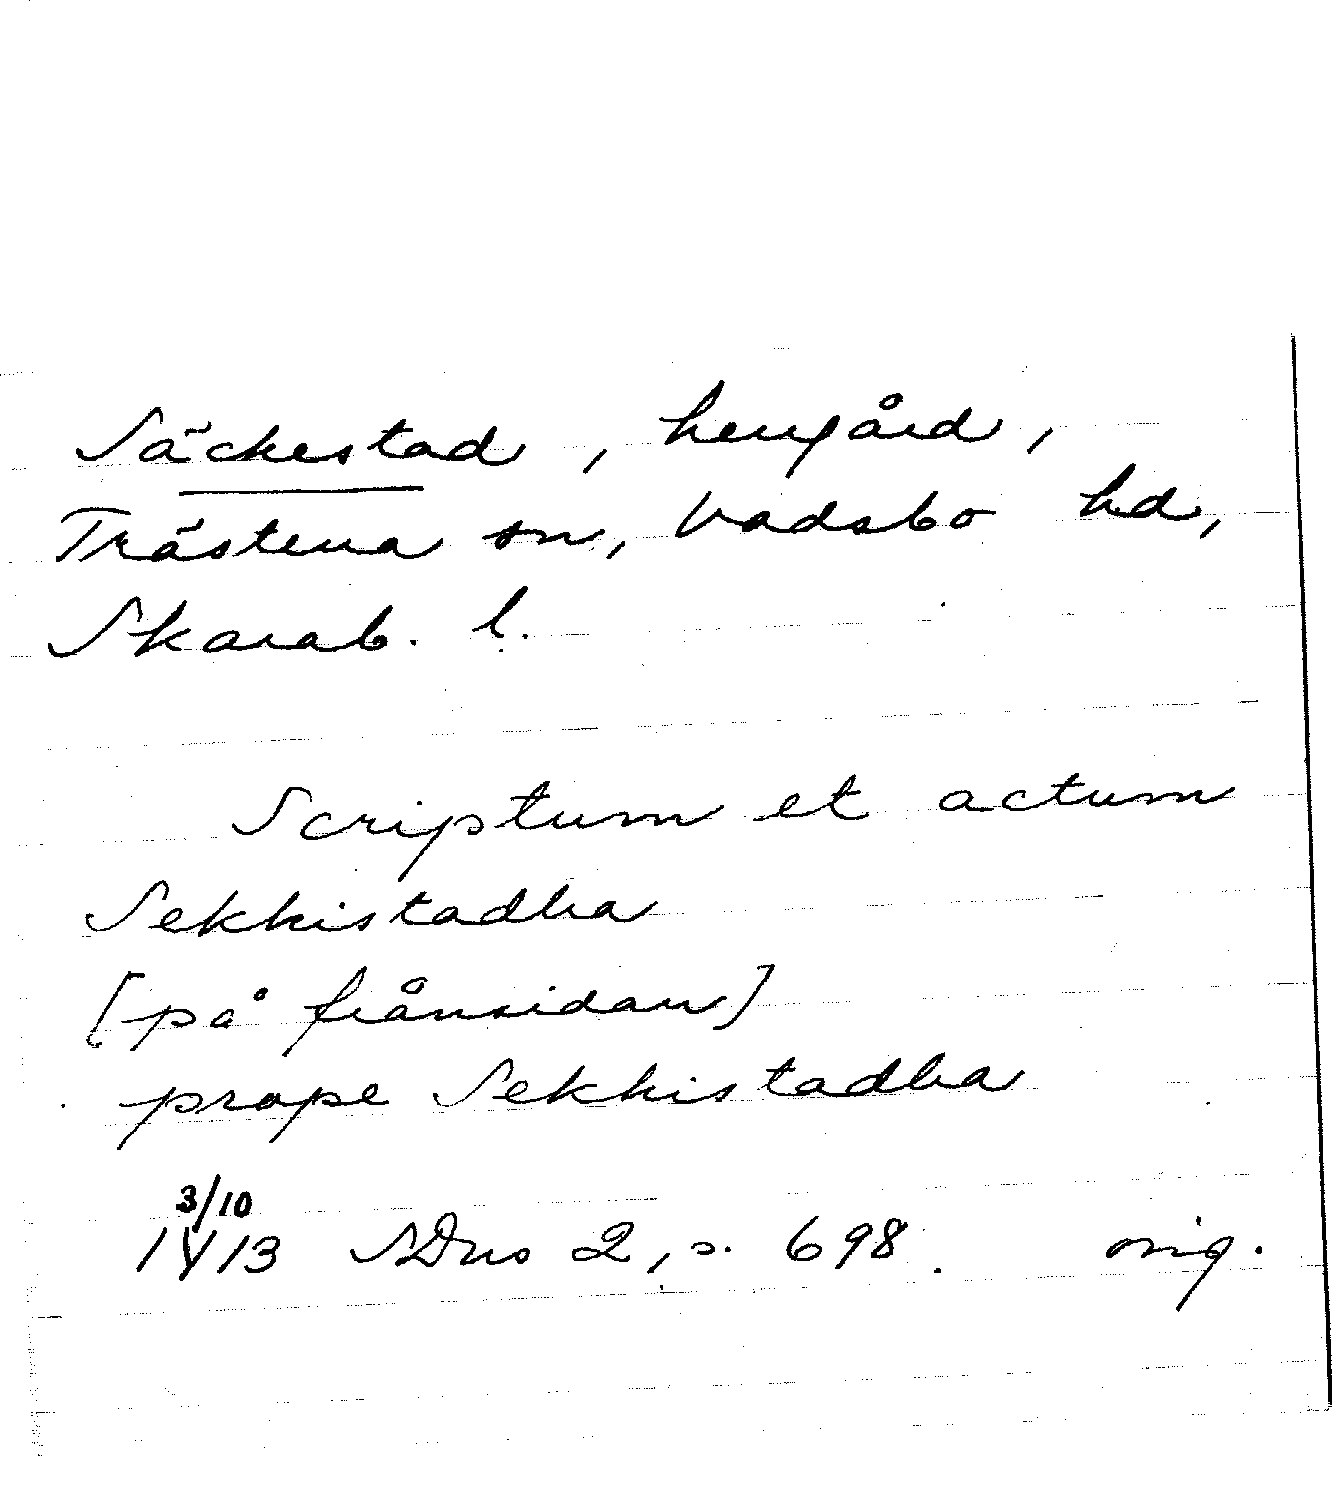 Säckestad, herrgård,
Trästena sn, Vadsbo hd,
Skarab. l.
Scriptum et actum
Sekkistadha
[på frånsidan]
prope Sekkistadha
3/10
1413 SDns 2, s. 698. orig.